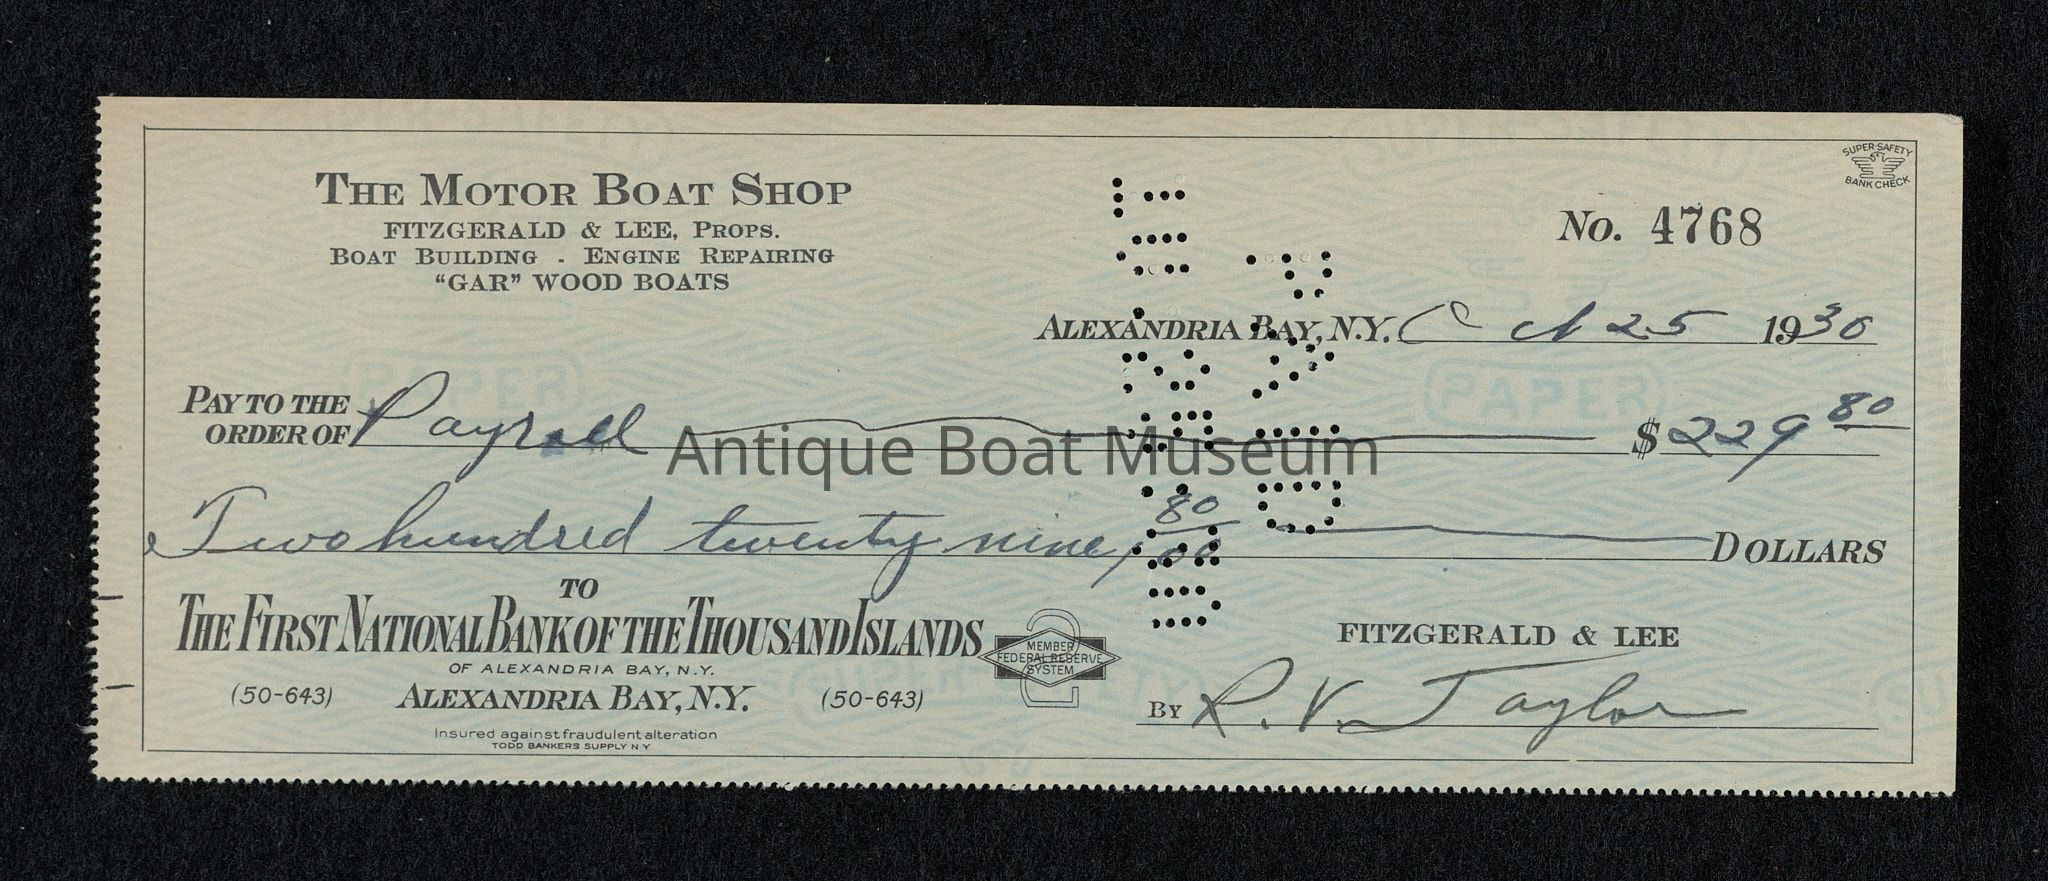 THE MOTOR BOAT SHOP
FITZGERALD & LEE, PROPS.
BOAT BUILDING - ENGINE REPAIRING
"GAR" WOOD BOATS
SUPER-SAFETY
BANK CHECK
No. 4768
ALEXANDRIA BAY, N.Y. Oct 25 1930
PAPER PAPER
PAY TO THE
ORDER OF Payroll $229 80
Antique Boat Museum
Two hundred twenty nine, 80/00 DOLLARS
TO
THE FIRST NATIONAL BANK OF THE THOUSAND ISLANDS
OF ALEXANDRIA BAY, N.Y.
(50-643) ALEXANDRIA BAY, N.Y. (50-643)
Insured against fraudulent alteration
TODD BANKERS SUPPLY N Y
MEMBER
FEDERAL RESERVE
SYSTEM
2
FITZGERALD & LEE
BY R. V. Taylor